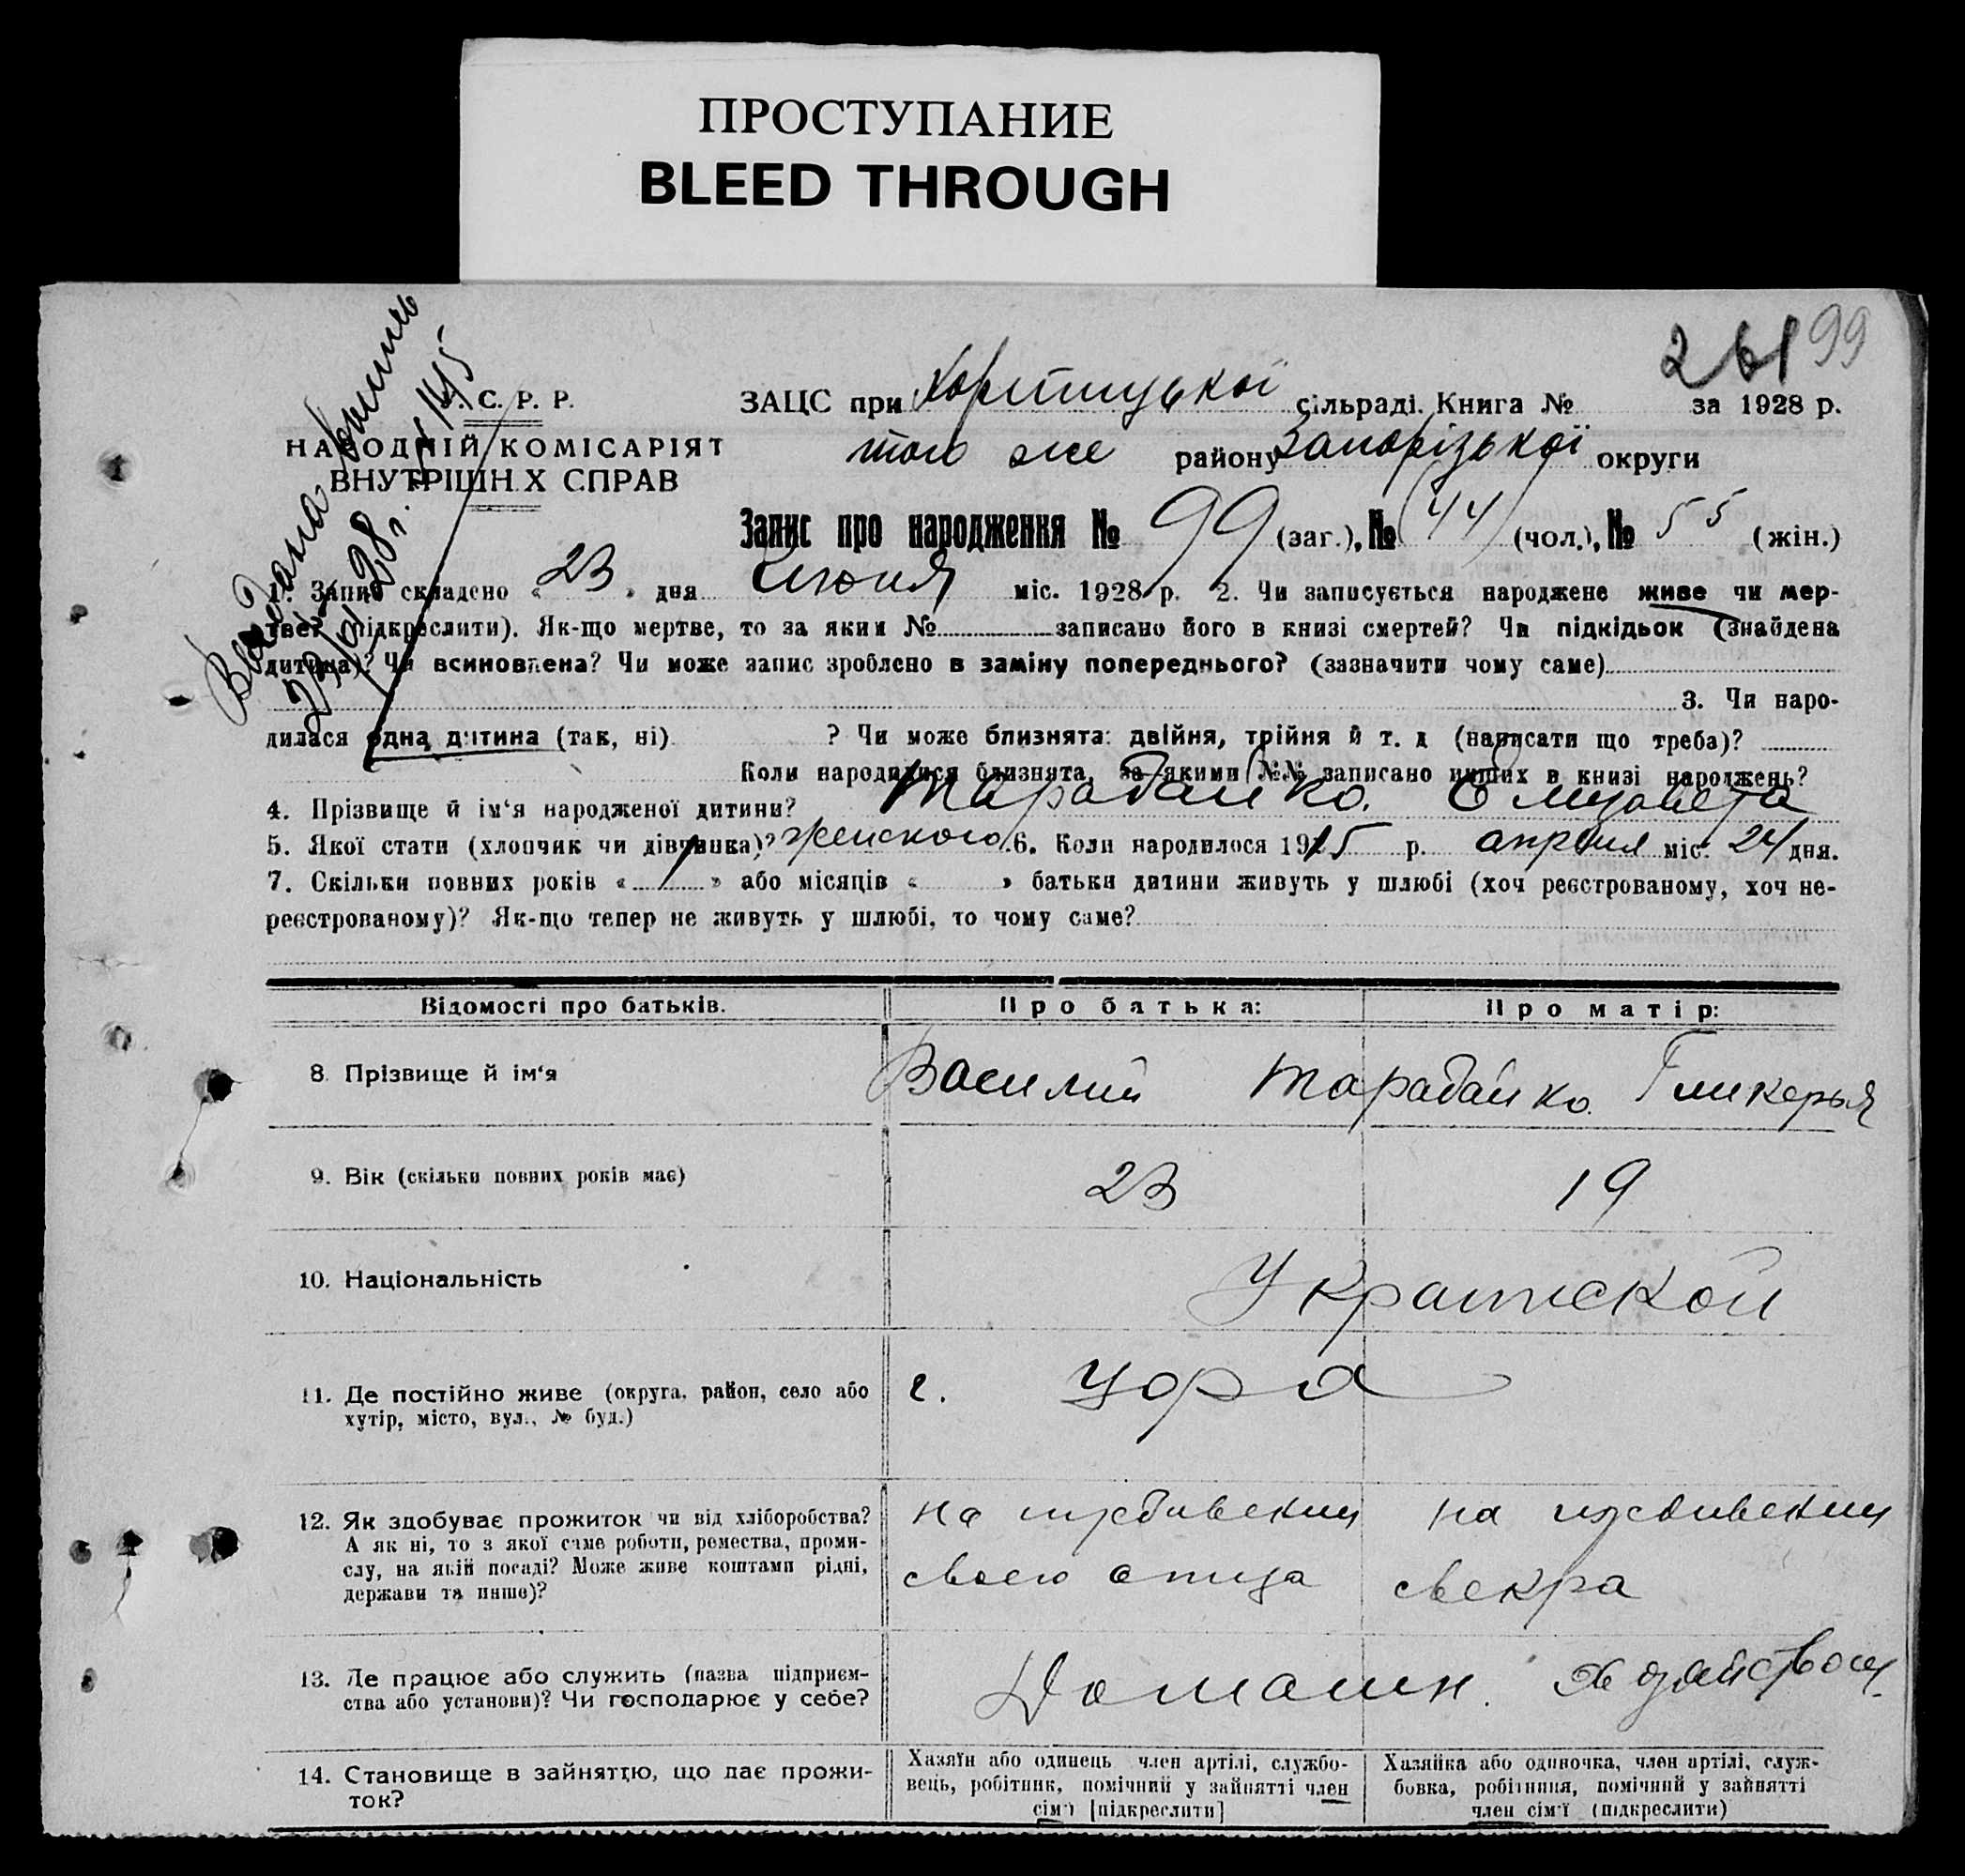 ПРОСТУПАНИЕ
BLEED THROUGH
261 99
С. Р. Р.
НАРОДНІЙ КОМІСАРІЯТ
ВНУТРІШН Х СПРАВ
ЗАЦС при Хортицької сільраді. Книга № за 1928 р.
того же району Запорізької округи
Запис про народження № 99 (заг.), № 44 (чол.), № 55 (жін.)
1. Запис складено « 23 » дня Июня міс. 1928 р. 2. Чи записується народжене живе чи мер-
тве (підкреслити). Як-що мертве, то за яким № записано його в книзі смертей? Чи підкідьок (знайдена
дитина)? Чи всиновлена? Чи може запис зроблено в заміну попереднього? (зазначити чому саме)
3. Чи наро-
дилася одна дитина (так, ні) ? Чи може близнята: двійня, трійня й т. д (написати що треба)?
Коли народилися близнята, за якими №№ записано инших в книзі народжень?
4. Прізвище й ім‘я народженої дитини? Тарабайко. Елизавета
5. Якої стати (хлопчик чи дівчинка)? женского 6. Коли народилося 1915 р. апреля міс. 24 дня.
7. Скільки повних років « » або місяців « » батьки дитини живуть у шлюбі (хоч реєстрованому, хоч не-
реєстрованому)? Як-що тепер не живуть у шлюбі, то чому саме?
Відомості про батьків. Про батька: Про матір:
8. Прізвище й ім‘я Василий Тарабайко Гликерья
9. Вік (скільки повних років має) 23 19
10. Національність Украинской
11. Де постійно живе (округа, район, село або г.
хутір, місто, вул., № буд.)
12. Як здобуває прожиток чи від хліборобства? на иждивении на иждивении
А як ні, то з якої саме роботи, ремества, проми-
слу, на якій посаді? Може живе коштами рідні, своего отца свекра
держави та инше)?
13. Де працює або служить (назва підприєм- Домашн. Хозяйством
ства або установи)? Чи господарює у себе?
14. Становище в зайняттю, що дає прожи-
ток?
Хазяїн або одинець член артілі, службо-
вець, робітник, помічний у зайнятті член
сім‘ї [підкреслити]
Хазяйка або одиночка, член артілі, служ-
бовка, робітниця, помічний у зайнятті
член сім‘ї (підкреслити)